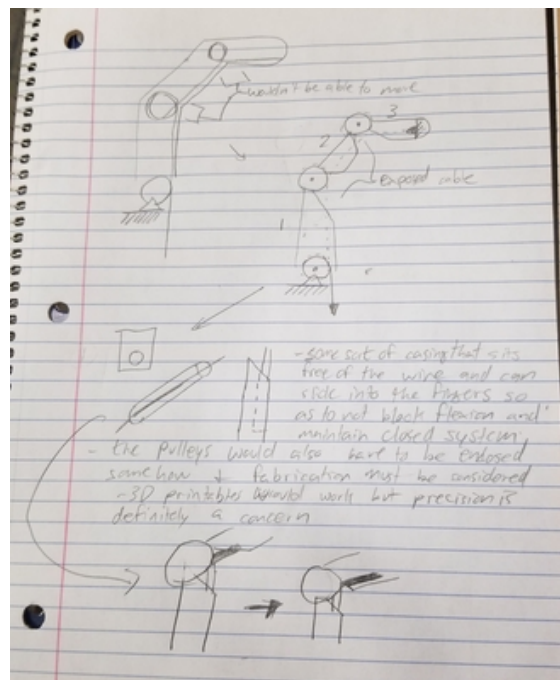 wouldn't be able to move
3
2
exposed cable
1
- some sort of casing that sits
free of the wire and can
slide into the fingers so
as to not block flexion and
maintain closed system.
- the pulleys would also have to be enclosed
somehow + fabrication must be considered
- 3D printables would work but precision is
definitely a concern